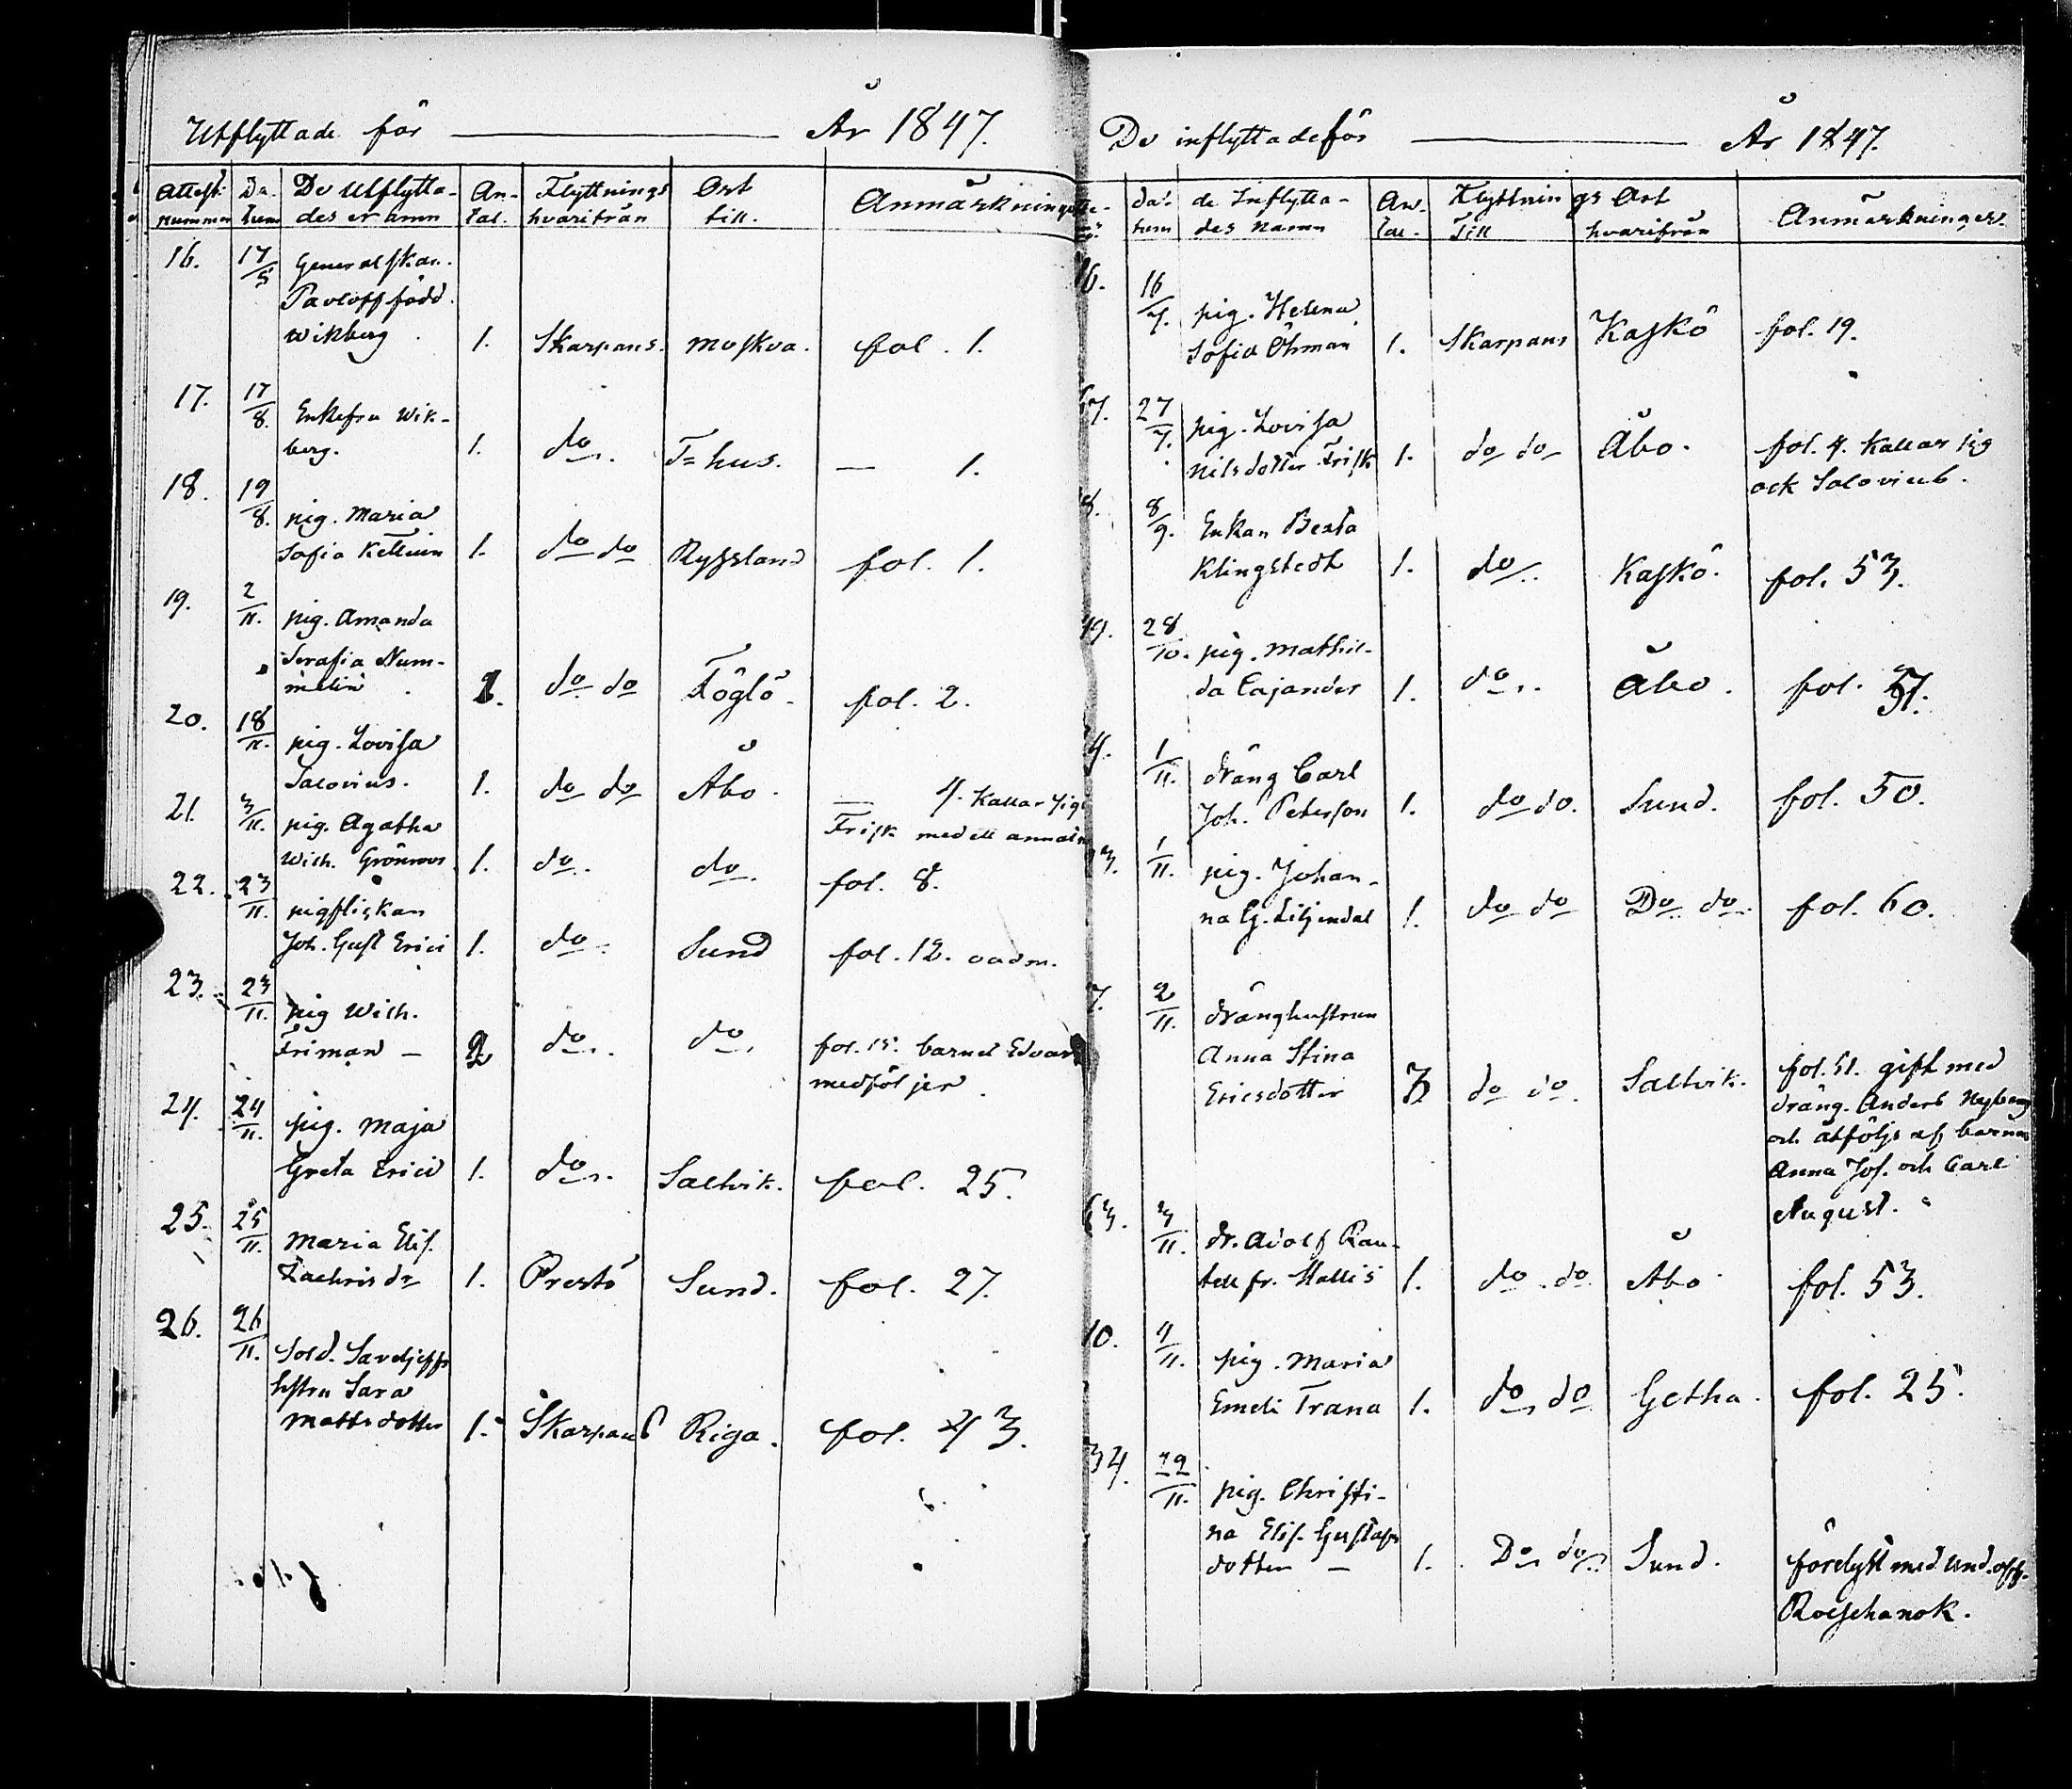 Utflyttade för År 1847.
Attest nummer Datum De Utflyttades namn Antal. Flyttnings hvarifrån Ort till. Anmärkninga
16. 17/5 Generalskan.
Pavloff född
Wikberg 1. Skarpans. Moskva. fol. 1.
17. 17/8. Enkefru Wik-
berg. 1. do. T=hus. — 1.
18. 19/8. pig. Maria
Sofia 1. do do Ryssland fol. 1.
19. 2/11. pig. Amanda
Serafia Num-
melin 1. do do Föglö. fol. 2.
20. 18/11. pig. Lovisa
Salovius. 1. do do Åbo. — 4. Kallar sig
Frisk med ett annat
21. 3/11. pig. Agatha
Wilh. Grönroos 1. do. do. fol. 8.
22. 23/11. pigflickan
Joh. Gust Erici 1. do. Sund fol. 12. oadm.
23. 23/11. pig Wilh.
Friman — 2 do. do. fol. 15. barnet Edvard
medföljer.
24. 24/11. pig. Maja
Greta Erici 1. do. Saltvik. fol. 25.
25. 25/11. Maria Elis.
Zachrisdr 1. Prestö Sund. fol. 27.
26. 26/11. Sold. Saveljeffs
hstru Sara
Mattsdotter 1. Skarpans Riga. fol. 43.
De inflyttade för År 1847.
Datum de Inflyttades namn Antal. Flyttnings Till Ort hvarifrån Anmärkninger.
16. 16/7. pig. Helena
Sofia Öhman 1. Skarpans Kaskö fol. 19.
67. 27/7. pig. Lovisa
Nilsdotter Frisk 1. do do Åbo. fol. 4. Kallar sig
ock Salovius.
8. 8/9. Enkan Berta
Klingstedt 1. do. Kaskö. fol. 53.
49. 28/10. pig. Mathil-
da Cajander 1. do. Åbo. fol. 51.
4. 1/11. dräng Carl
Joh. Peterson 1. do do. Sund. fol. 50.
3. 1/11. pig. Johan-
na G. Liljendal 1. do do Do do. fol. 60.
7. 2/11. dränghustrun
Anna Stina
Ericsdotter 3 do do. Saltvik. fol. 51. gift med
dräng. Anders Nyberg
och åtföljs af barnen
Anna Jos. och Carl
August.
63. 3/11. dr. Adolf Ran-
tell fr. Hallis 1. do do Åbo fol. 53.
10. 4/11. pig. Maria
Emeli Trana 1. do do Getha. fol. 25.
34. 22/11. pig. Christi-
na Elis. Gustafs
dotter — 1. Do do. Sund. förelyst med und.off.